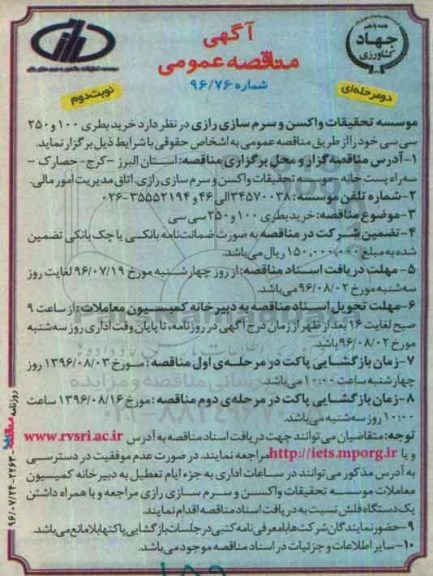 آگهی
مناقصه عمومی
شماره ۹۶/۷۶
جهاد
کشاورزی
دو مرحله‌ای
نوبت دوم
موسسه تحقیقات واکسن و سرم سازی رازی در نظر دارد خرید بطری ۱۰۰ و ۲۵۰
سی سی خود را از طریق مناقصه عمومی به اشخاص حقوقی با شرایط ذیل برگزار نماید.
۱-آدرس مناقصه گزار و محل برگزاری مناقصه: استان البرز -کرج- حصارک -
سه راه پست خانه -موسسه تحقیقات واکسن و سرم سازی رازی، اتاق مدیریت امور مالی.
۲-شماره تلفن موسسه: ۳۴۵۷۰۰۳۸ الی ۴۶ و ۳۵۵۵۲۱۹۴-۰۲۶
۳-موضوع مناقصه: خرید بطری ۱۰۰ و ۲۵۰ سی سی
۴-تضمین شرکت در مناقصه به صورت ضمانت‌نامه بانکی یا چک بانکی تضمین
شده به مبلغ ۱۵۰,۰۰۰,۰۰۰ ریال می‌باشد.
۵- مهلت دریافت اسناد مناقصه: از روز چهارشنبه مورخ ۹۶/۰۷/۱۹ لغایت روز
سه‌شنبه مورخ ۹۶/۰۸/۰۲ می‌باشد.
۶-مهلت تحویل اسناد مناقصه به دبیرخانه کمیسیون معاملات: از ساعت ۹
صبح لغایت ۱۶ بعد از ظهر از زمان درج آگهی در روزنامه، تا پایان وقت اداری روز سه‌شنبه
مورخ ۹۶/۰۸/۰۲ باشد.
۷-زمان بازگشایی پاکت در مرحله‌ی اول مناقصه: مورخ ۱۳۹۶/۰۸/۰۳ روز
چهارشنبه ساعت ۱۰:۰۰ می‌باشد.
۸-زمان بازگشایی پاکت در مرحله‌ی دوم مناقصه: مورخ ۱۳۹۶/۰۸/۱۶ ساعت
۱۰:۰۰ روز سه‌شنبه می‌باشد.
توجه: متقاضیان می‌توانند جهت دریافت اسناد مناقصه به آدرس www.rvsri.ac.ir
و یا http://iets.mporg.ir مراجعه نمایند. در صورت عدم موفقیت در دسترسی
به آدرس مذکور می‌توانند در ساعات اداری به جزء ایام تعطیل به دبیرخانه کمیسیون
معاملات موسسه تحقیقات واکسن و سرم سازی رازی مراجعه و با همراه داشتن
یک دستگاه فلش نسبت به دریافت اسناد مناقصه اقدام نمایند.
۹-حضور نمایندگان شرکت‌ها با معرفی نامه کتبی در جلسات بازگشایی پاکتها بلامانع می‌باشد.
۱۰-سایر اطلاعات و جزئیات در اسناد مناقصه موجود می‌باشد.